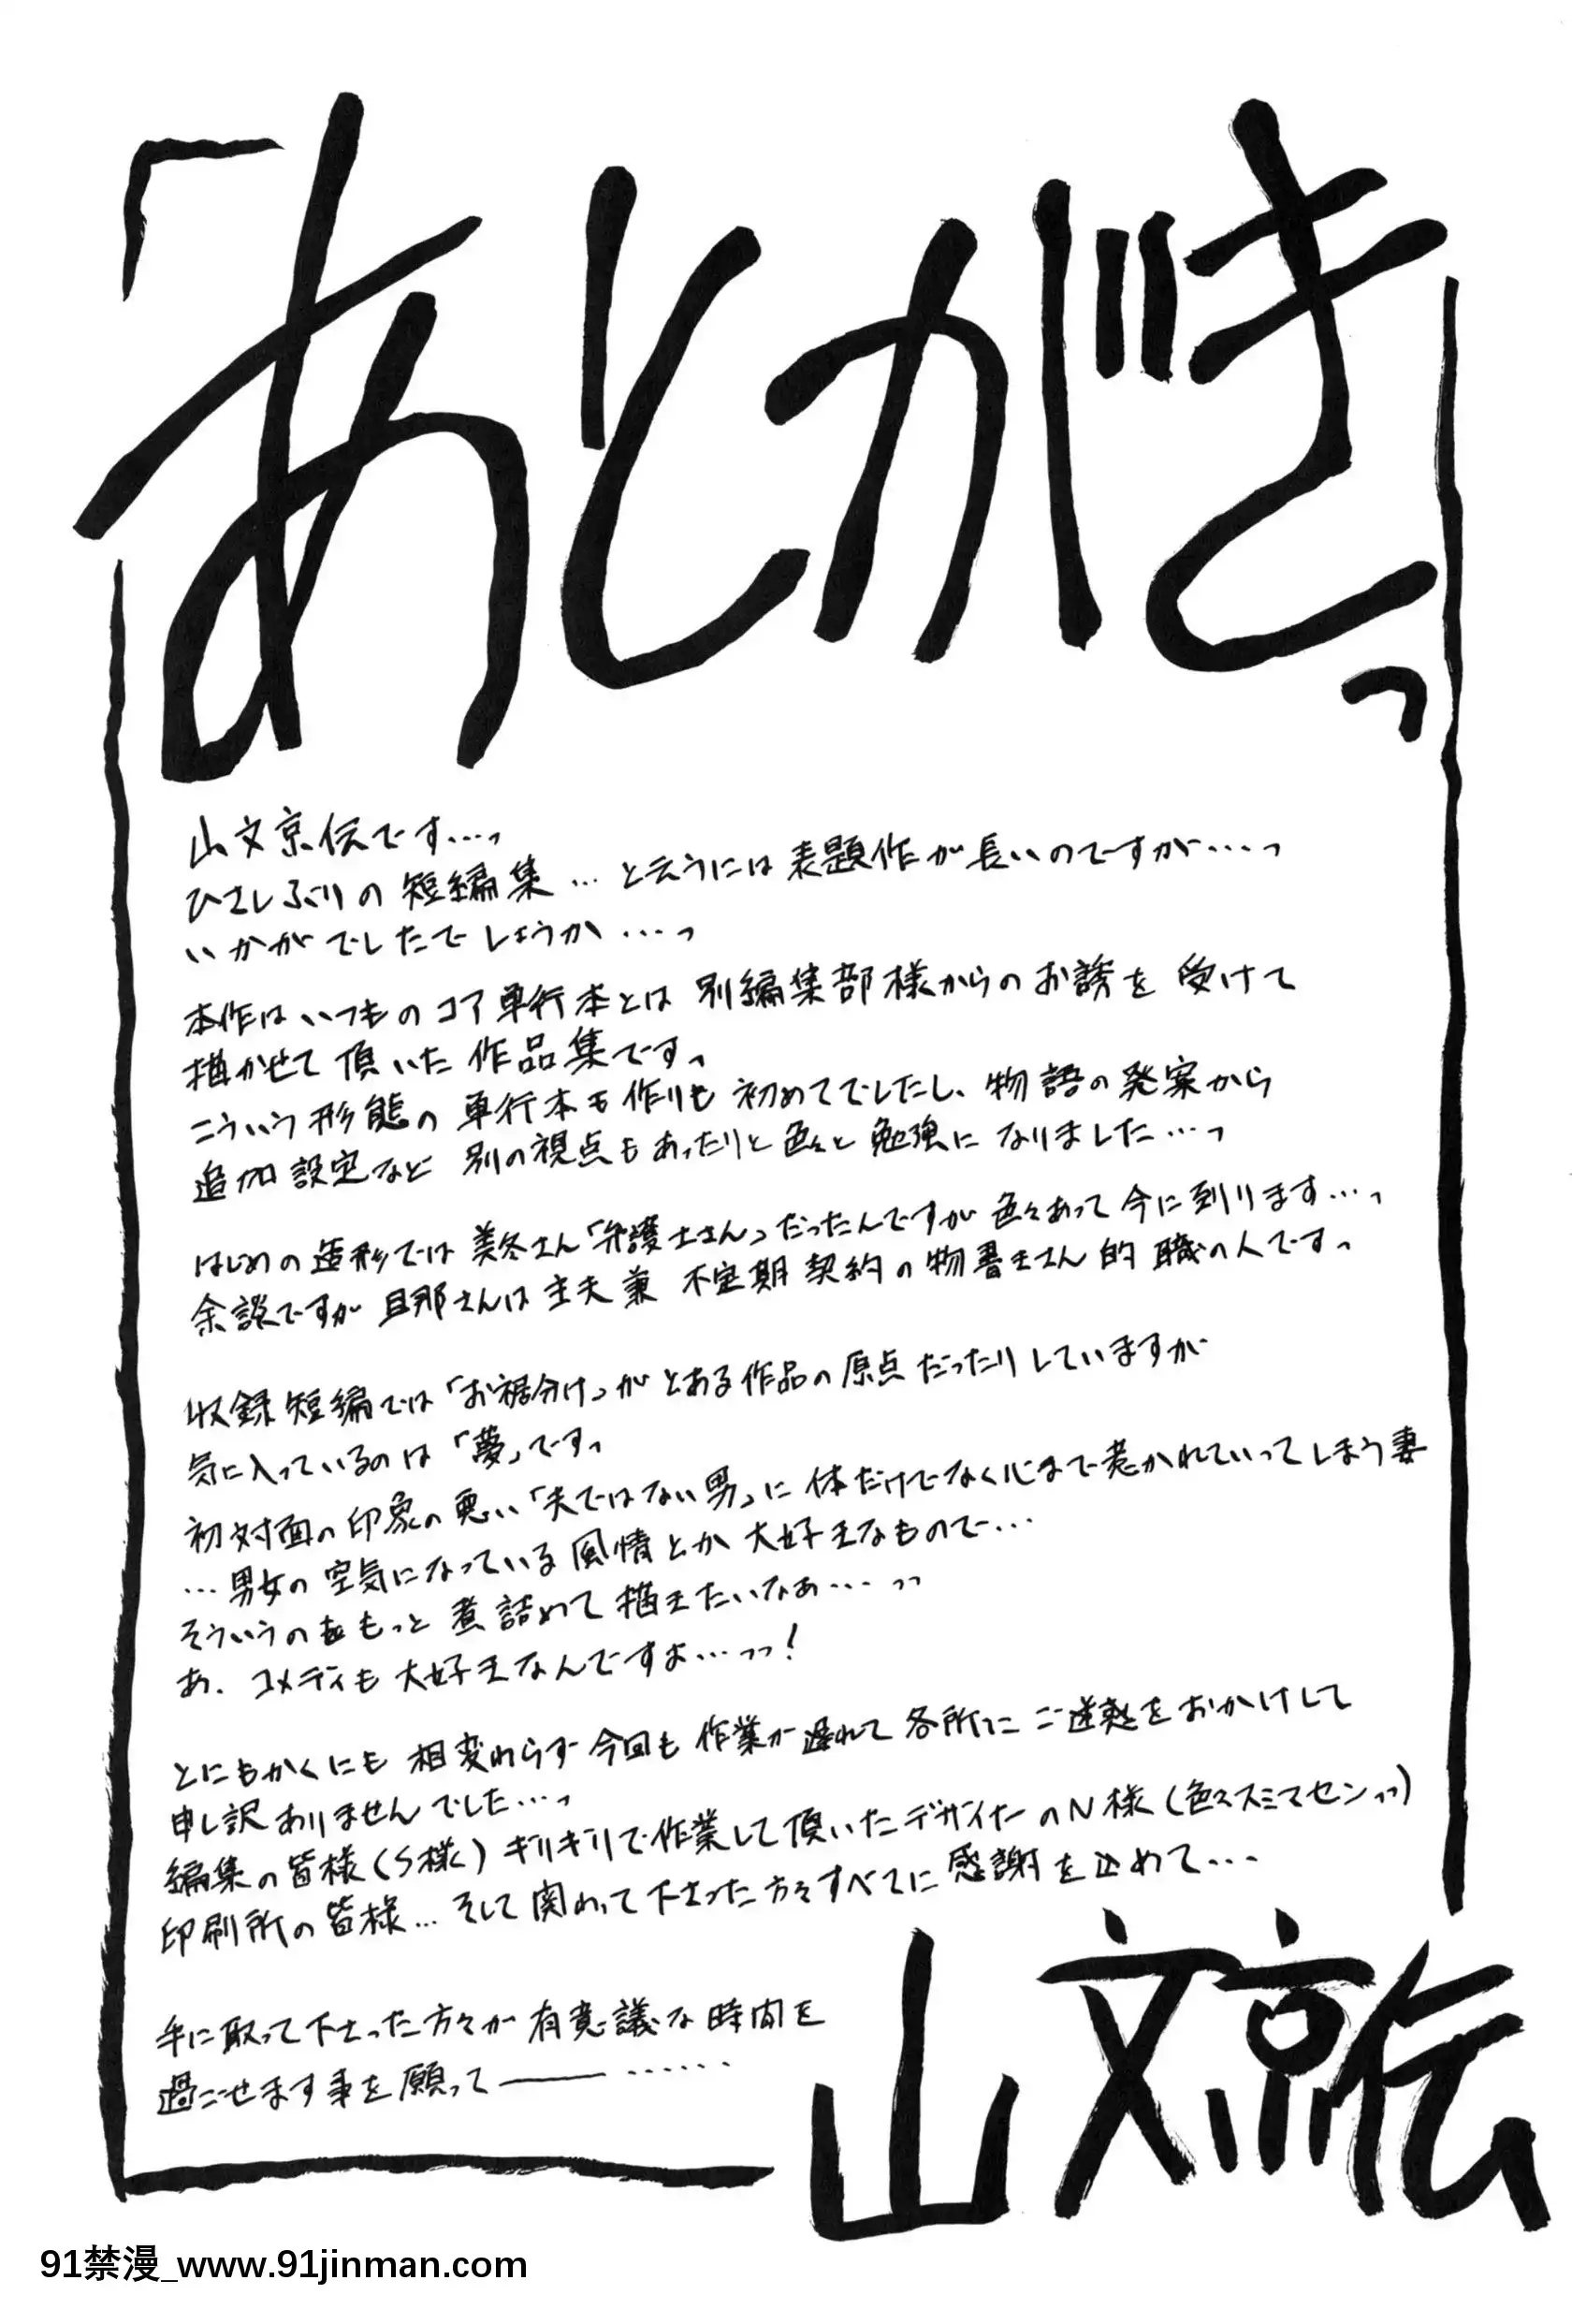 「あとがきっ
山文京伝です…っ
ひさしぶりの短編集…と云うには表題作が長いのですが…っ
いかがでしたでしょうか…っ
本作はいつものコア単行本とは別編集部様からのお誘を受けて
描かせて頂いた作品集ですっ
こういう形態の単行本も作りも初めてでしたし、物語の発案から
追加設定など別の視点もあったりと色々と勉強になりました…っ
はじめの造形では美冬さん「弁護士さん」だったんですが色々あって今に到ります…っ
余談ですが旦那さんは主夫兼不定期契約の物書きさん的職の人ですっ
収録短編では「お裾分け」がとある作品の原点だったりしていますが
気に入っているのは「夢」ですっ
初対面の印象の悪い「夫ではない男」に体だけでなく心まで惹かれていってしまう妻
…男女の空気になっている風情とか大好きなもので…
そういうのをもっと煮詰めて描きたいなぁ…っっ
あ、コメディも大好きなんですよ…っっ!
とにもかくにも相変わらず今回も作業が遅れて各所にご迷惑をおかけして
申し訳ありませんでした…っ
編集の皆様(S様)ギリギリで作業して頂いたデザイナーのN様(色々スミマセンっっ)
印刷所の皆様…そして関わって下さった方々すべてに感謝を込めて…
手に取って下さった方々が有意議な時間を
過ごせます事を願って――……
山文京伝
91禁漫_www.91jinman.com